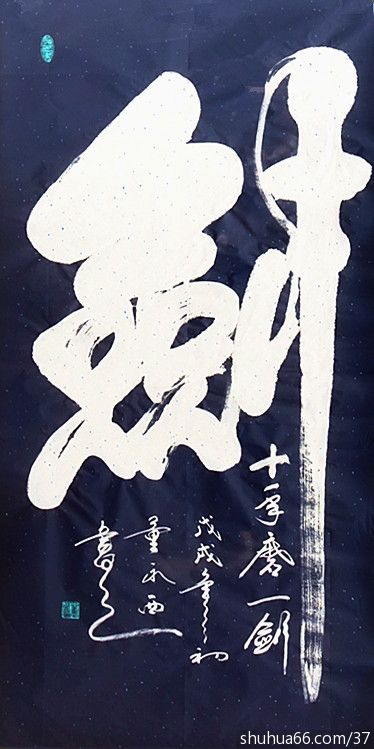 劍
十年磨一劍
戊戌年之初
董永西
書之
shuhua66.com/37